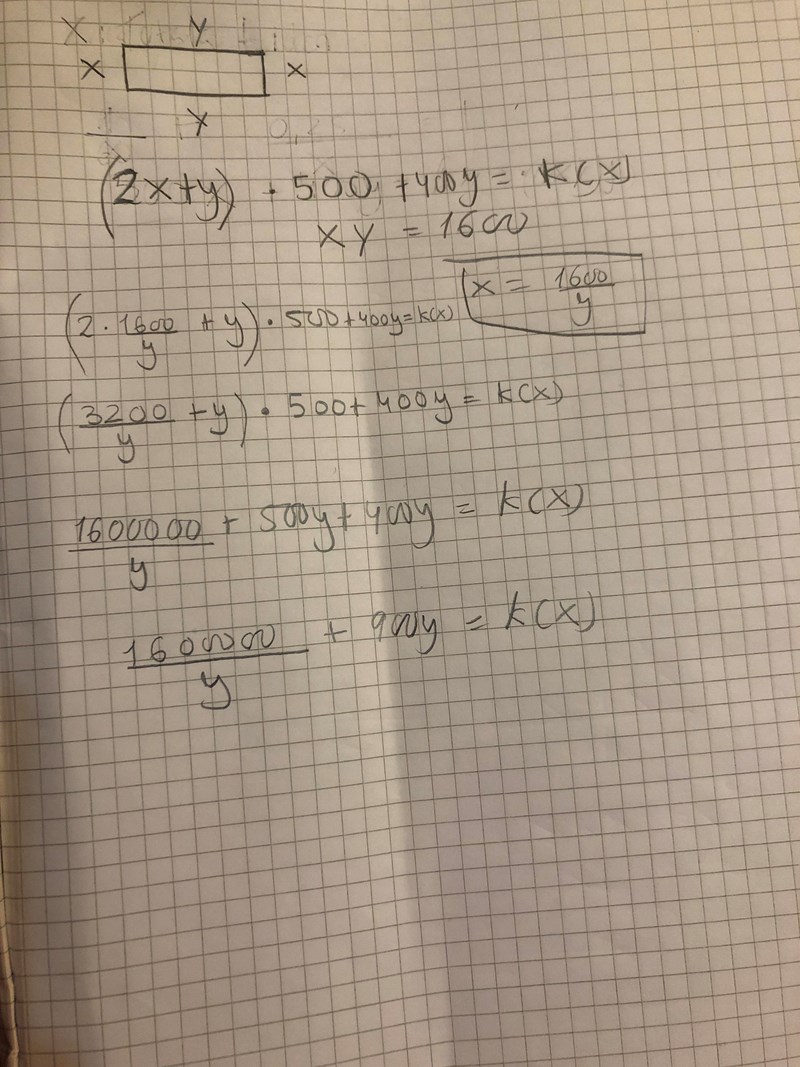 Y
X X
Y
(2x+y) · 500 + 400y = k(x)
xy = 1600
x = 1600/y
(2 · 1600/y + y) · 500 + 400y = k(x)
(3200/y + y) · 500 + 400y = k(x)
1600000/y + 500y + 400y = k(x)
1600000/y + 900y = k(x)